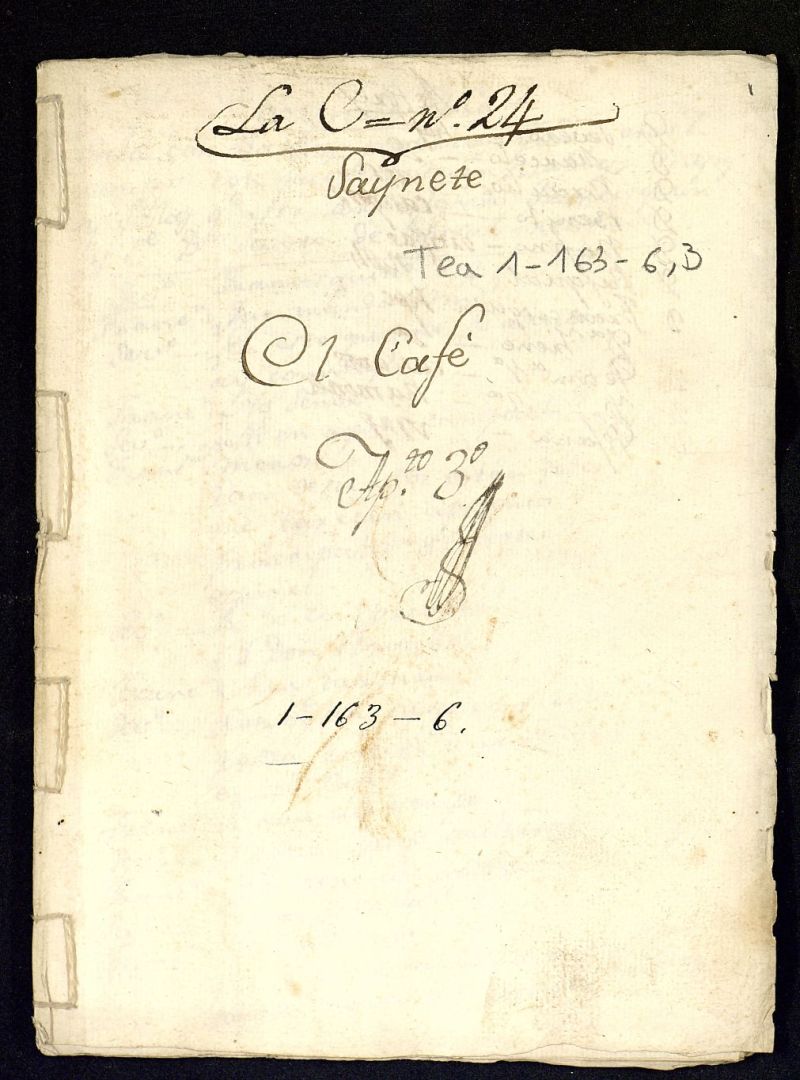 La C= nº. 24
Saynete
Tea 1-163-6, B
El Café
Ap.to 3º
1-163-6.